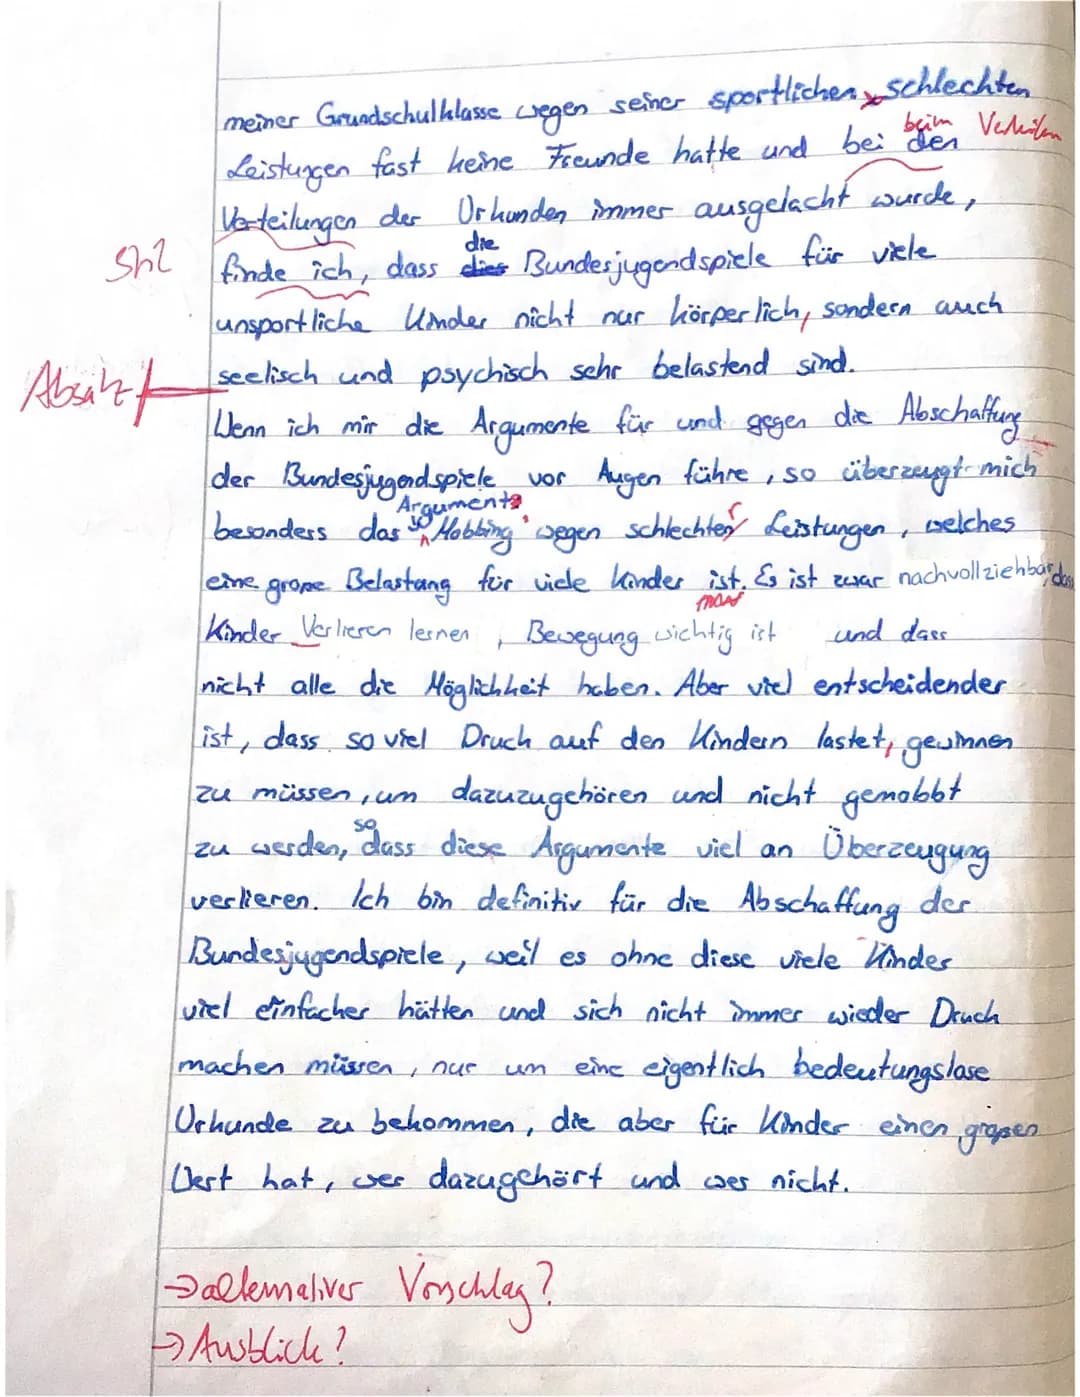 meiner Grundschulklasse wegen seiner sportlichen schlechten
beim Verteilen
Leistungen fast keine Freunde hatte und bei den
Verteilungen der Urkunden immer ausgelacht wurde,
die
finde ich, dass dies Bundesjugendspiele für viele
unsportliche Kinder nicht nur körperlich, sondern auch
seelisch und psychisch sehr belastend sind.
Absatz
Wenn ich mir die Argumente für und gegen die Abschaffung
der Bundesjugendspiele vor Augen führe, so überzeugt mich
Argument
besonders das "Mobbing" wegen schlechter Leistungen, welches
eine grosse Belastung für viele Kinder ist. Es ist zwar nachvollziehbar, dass
Kinder Verlieren lernen, Bewegung wichtig ist und dass
nicht alle die Möglichkeit haben. Aber viel entscheidender
ist, dass so viel Druck auf den Kindern lastet, gewinnen
zu müssen, um dazuzugehören und nicht gemobbt
so
zu werden, dass diese Argumente viel an Überzeugung
verlieren. Ich bin definitiv für die Abschaffung der
Bundesjugendspiele, weil es ohne diese viele Kinder
viel einfacher hätten und sich nicht immer wieder Druck
machen müssen, nur um eine eigentlich bedeutungslose
Urkunde zu bekommen, die aber für Kinder einen grossen
Wert hat, wer dazugehört und wer nicht.
→ alternativer Vorschlag?
→ Ausblick?